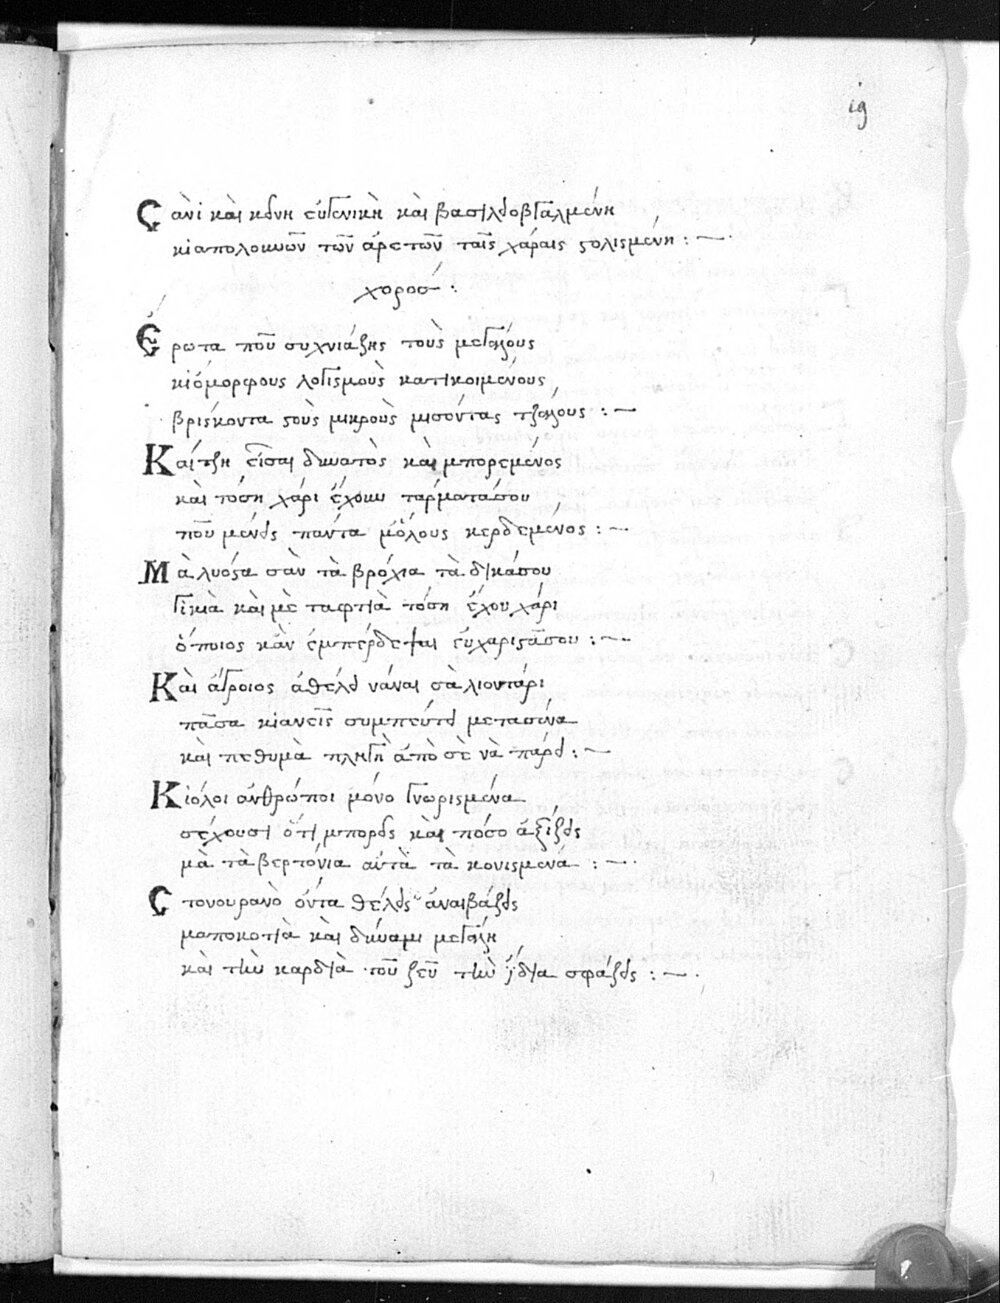 ιg
Σὰνὶ καὶ κείνη εὐγενικὴ καὶ βασιλεοβγαλμένη
κιαπολουνῶν τῶν ἀρετῶν ταῖς χάραις στολισμένη :—
χορος :
Ἔρωτα ποῦ συχνιάζης τοὺς μεγάλους
κιόμορφους λογισμοὺς κατικοιμένους
βρίσκοντα στοὺς μικροὺς μισόντας τζάλους :—
Καίτζη εἶσαι δυνατὸς καὶ μπορεμένος
καὶ τόση χάρι ἔχουν ταρματάσου
ποῦ μένεις πάντα μὄλους κερδεμένος :—
Μὰ λυόσα σὰν τὰ βρόχια τὰ δικάσου
γλυκιὰ καὶ μὲ ταφτιὰ τόση ἔχου χάρι
ὁποιος κἂν ἐμπέρδεψαι εὐχαριστᾶσου :—
Καὶ ἄγροιος ἀθέλει νάναι σὰ λιοντάρι
πᾶσα κιανεῖς συμπεύτει μετασένα
καὶ πεθυμὰ πληγὴ ἀπὸ σὲ νὰ πάρει :—
Κιόλοι ἀνθρώποι μόνο γνωρισμένα
σέχουσι ὅτι μπορεῖς καὶ πόσο ἀξίζεις
μὰ τὰ βερτόνια αὐτὰ τὰ κονισμενα :—
Στονουρανὸ ὀντα θέλεις ἀναιβάζεις
μαποκοτιὰ καὶ δύναμι μεγάλη
καὶ τὴν καρδιὰ τοῦ ζεῦ τὴν ἴδια σφάζεις :—